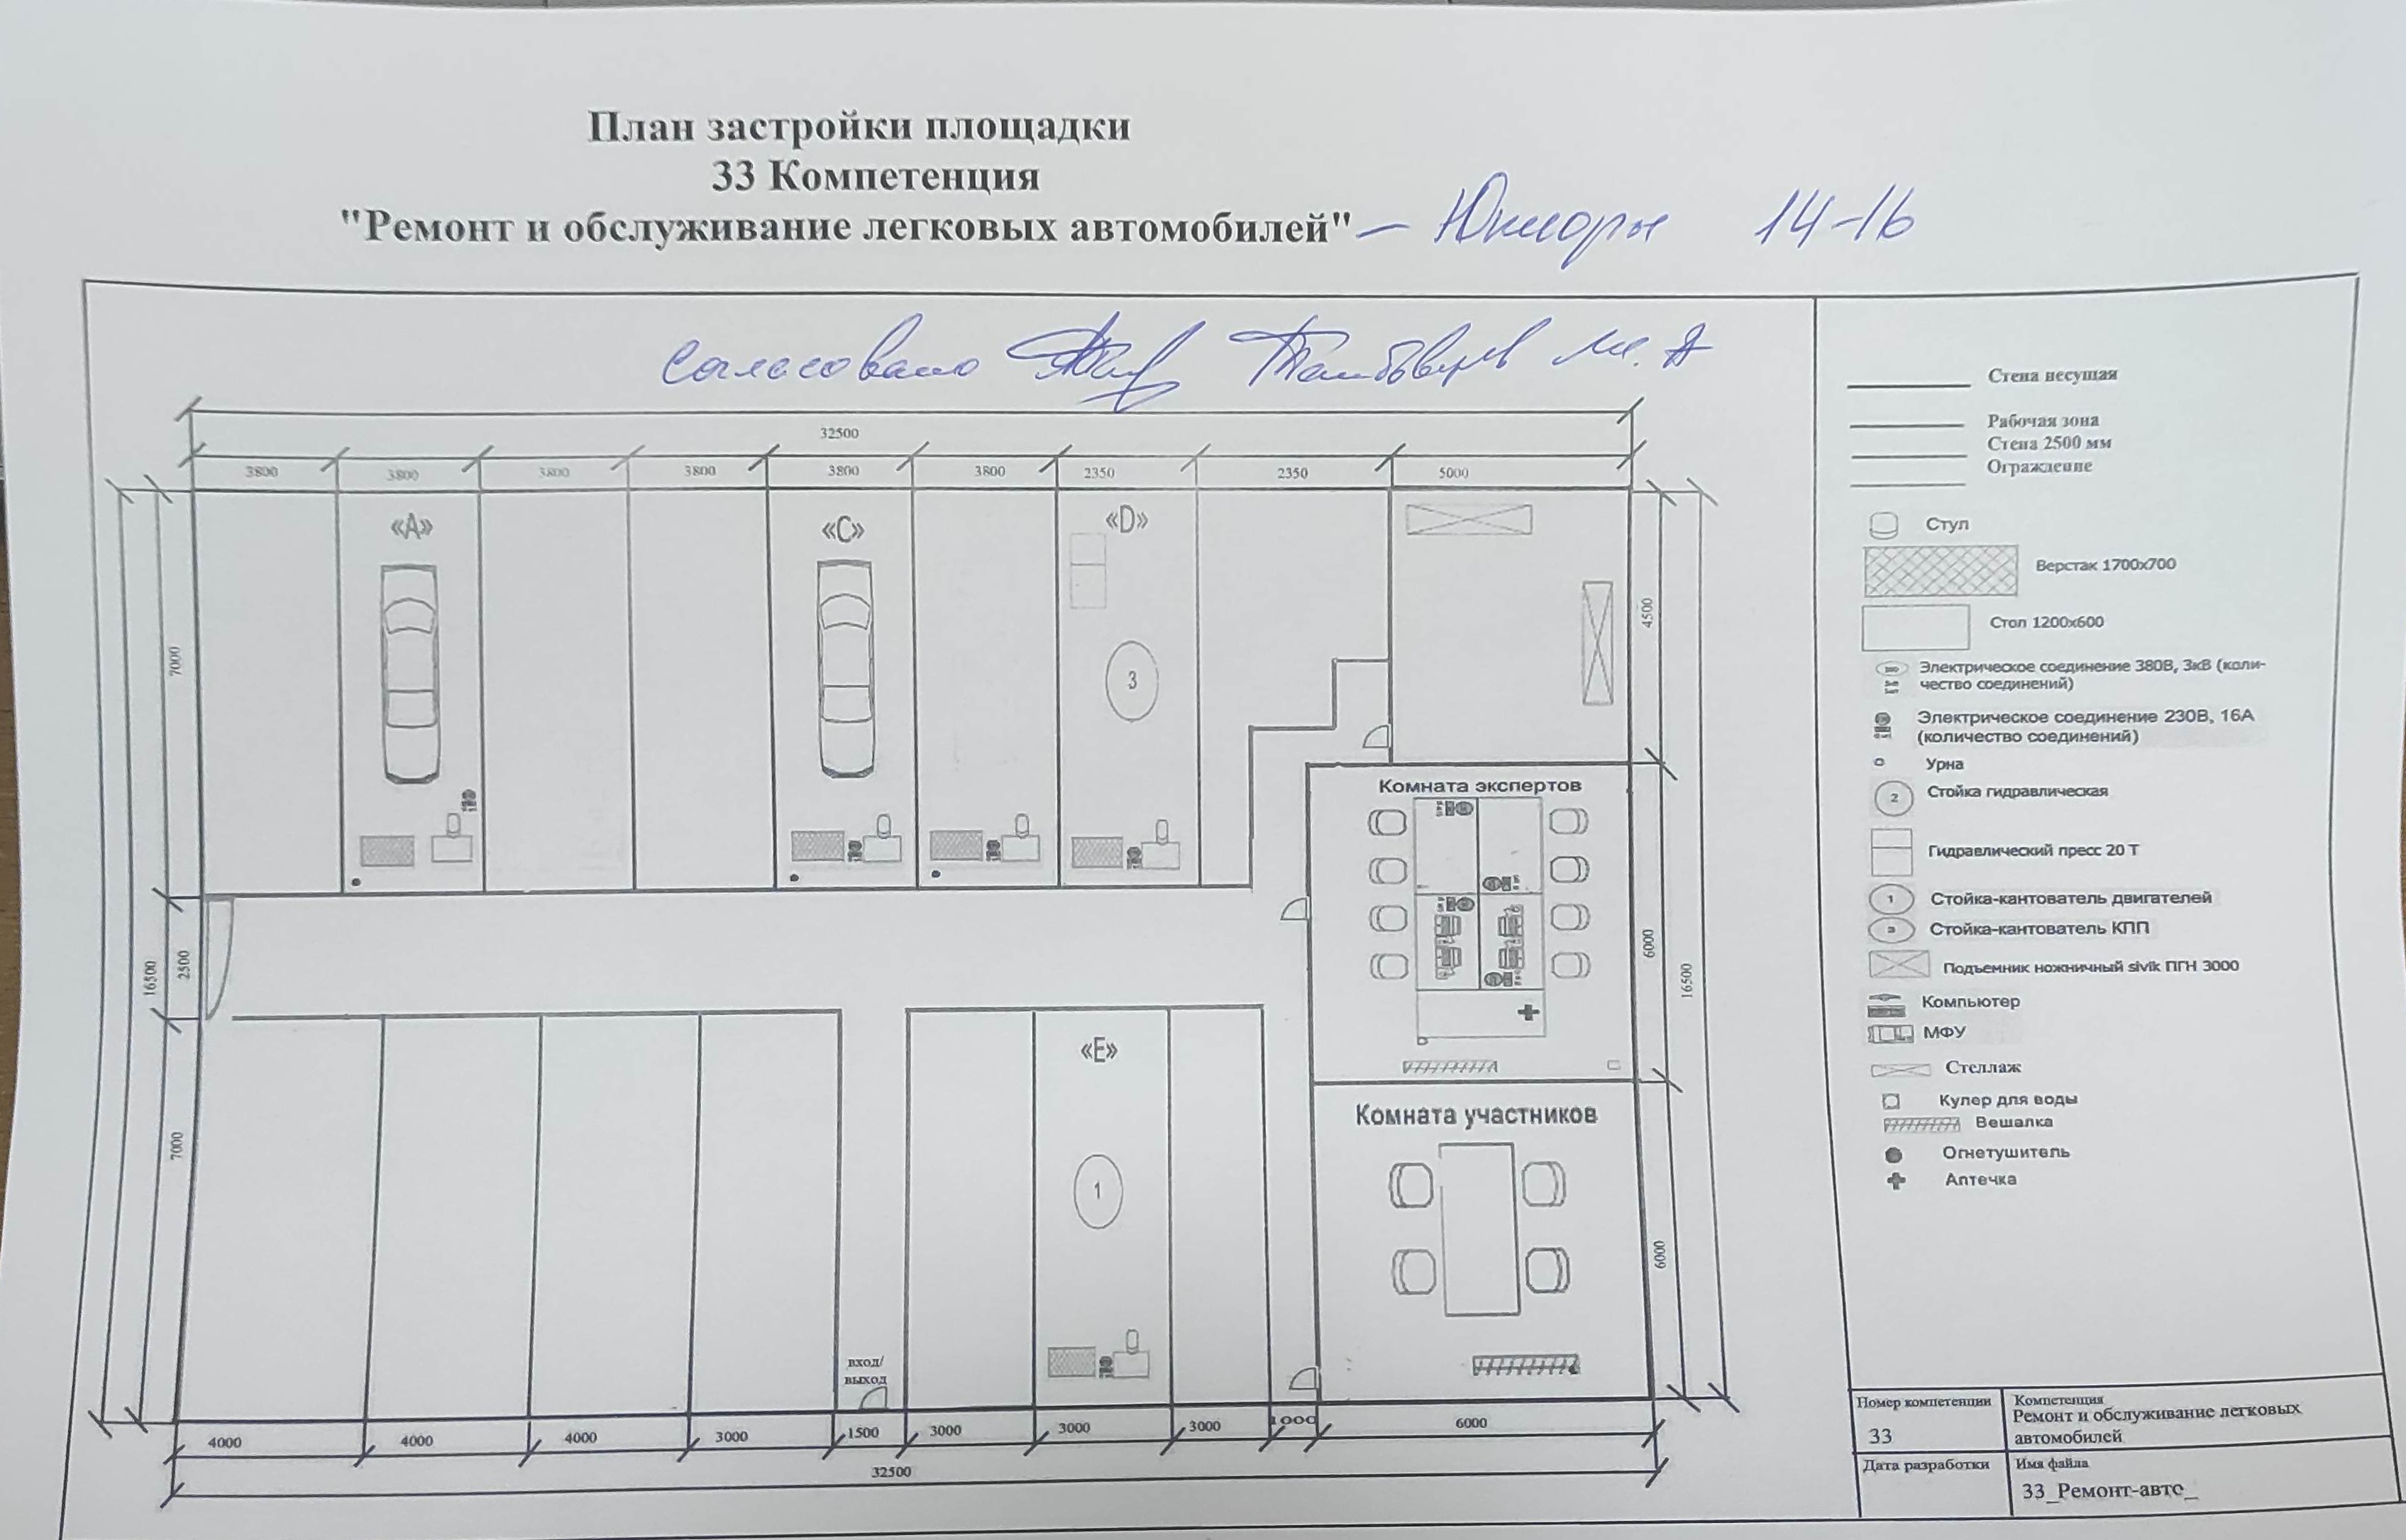 План застройки площадки
33 Компетенция
"Ремонт и обслуживание легковых автомобилей" — Юниоры 14-16
согласовано
32500
3800 3800 3800 3800 3800 3800 2350 2350 5000
«А» «С» «D»
3
7000
4500
Комната экспертов
16500
2500
6000
16500
«Е»
1
Комната участников
7000
6000
вход/
выход
4000 4000 4000 3000 1500 3000 3000 3000 1000 6000
32500
Стена несущая
Рабочая зона
Стена 2500 мм
Ограждение
Стул
Верстак 1700х700
Стол 1200х600
Электрическое соединение 380В, 3кВ (коли-
чество соединений)
Электрическое соединение 230В, 16А
(количество соединений)
Урна
2 Стойка гидравлическая
Гидравлический пресс 20 Т
1 Стойка-кантователь двигателей
3 Стойка-кантователь КПП
Подъемник ножничный sivik ПГН 3000
Компьютер
МФУ
Стеллаж
Кулер для воды
Вешалка
Огнетушитель
Аптечка
Номер компетенции
33
Компетенция
Ремонт и обслуживание легковых
автомобилей
Дата разработки
Имя файла
33_Ремонт-авто_